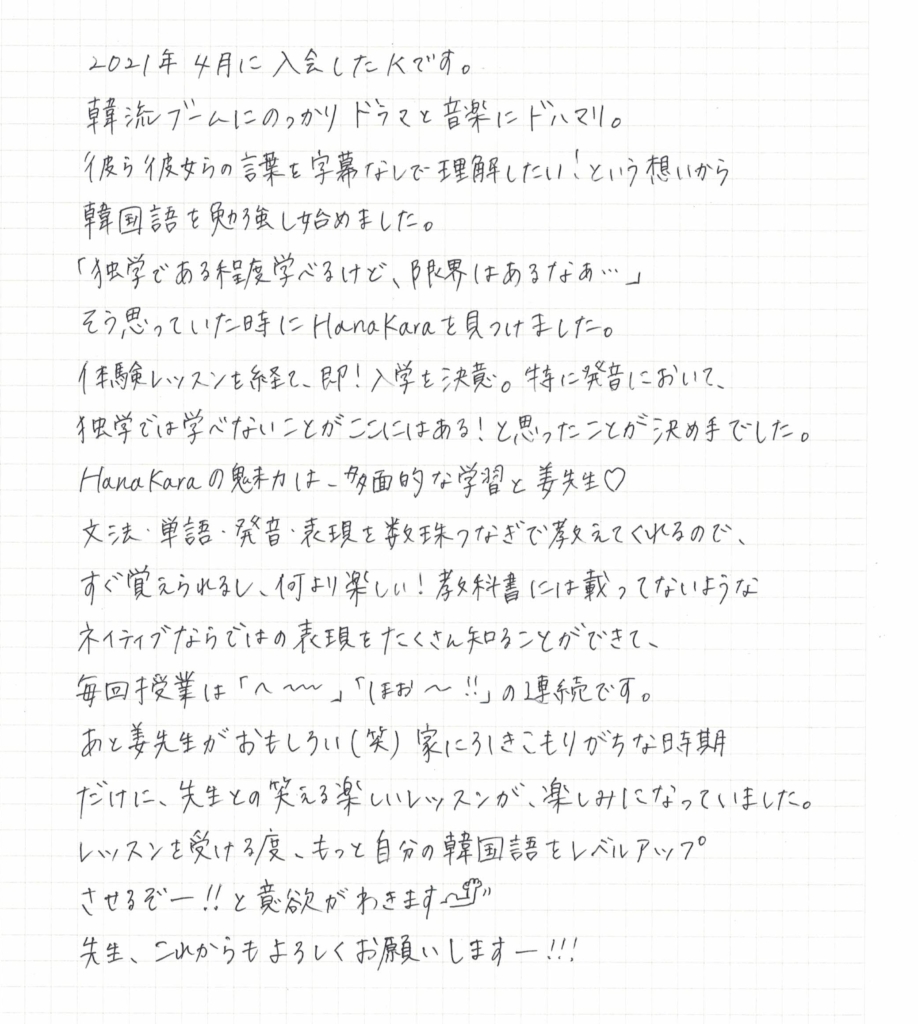 2021年4月に入会したKです。
韓流ブームにのっかりドラマと音楽にドハマリ。
彼ら彼女らの言葉を字幕なしで理解したい！という想いから
韓国語を勉強し始めました。
「独学である程度学べるけど、限界はあるなぁ…」
そう思っていた時にHanaKaraを見つけました。
体験レッスンを経て、即！入学を決意。特に発音において、
独学では学べないことがここにはある！と思ったことが決め手でした。
HanaKaraの魅力は、多面的な学習と姜先生♡
文法・単語・発音・表現を数珠つなぎで教えてくれるので、
すぐ覚えられるし、何より楽しい！教科書には載ってないような
ネイティブならではの表現をたくさん知ることができて、
毎回授業は「へ〜〜」「ほぉ〜!!」の連続です。
あと姜先生がおもしろい(笑)家に引きこもりがちな時期
だけに、先生との笑える楽しいレッスンが、楽しみになっていました。
レッスンを受ける度、もっと自分の韓国語をレベルアップ
させるぞー!!と意欲がわきます
先生、これからもよろしくお願いしますー!!!